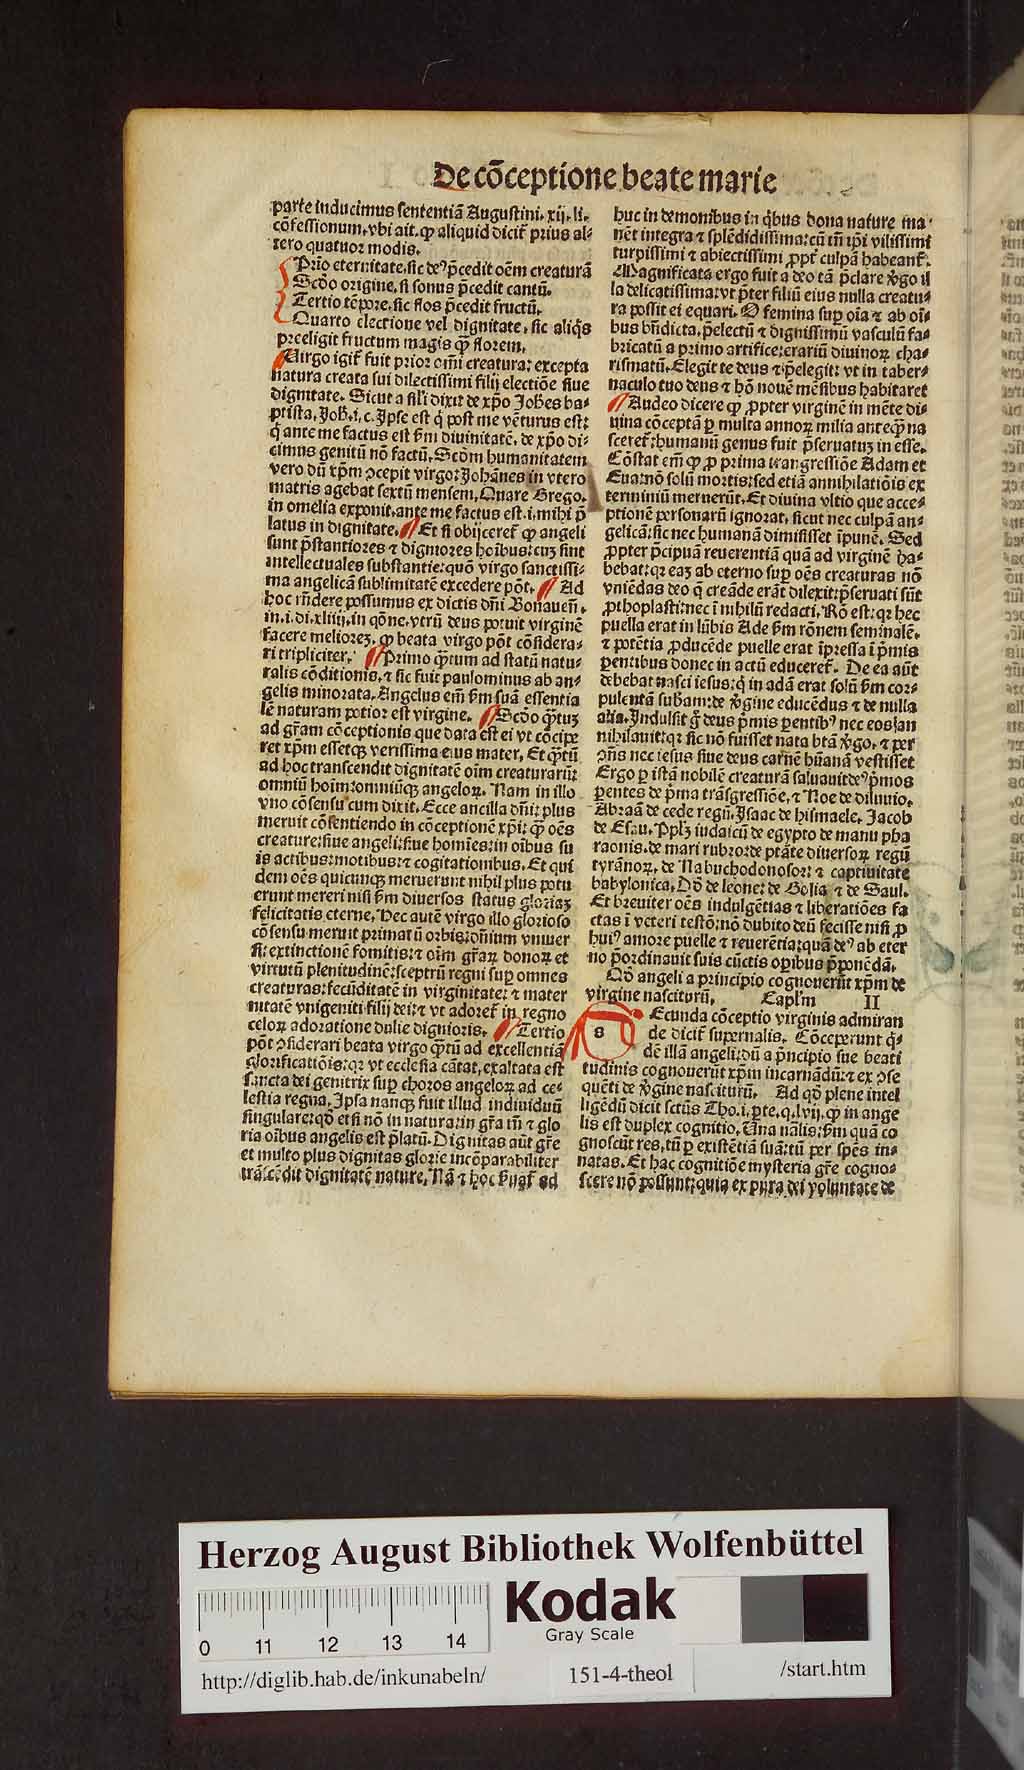 De cōceptione beate marie
parte inducimus sententiā Augustini. xij. li.
cōfessionum. vbi ait. ꝙ aliquid dicit᷑ prius al⸗
tero quatuor modis.
Prīo eternitate. sic deꝰ p̄cedit oēm creaturā
Scd̄o origine. si sonus p̄cedit cantū.
Tertio tēpore. sic flos p̄cedit fructū.
Quarto electione vel dignitate. sic aliq̄s
preeligit fructum magis ꝙ̄ florem.
Uirgo igit᷑ fuit prior om̄i creatura: excepta
natura creata sui dilectissimi filij electiōe siue
dignitate. Sicut a sil'i dixit de xp̄o Joh̄es ba⸗
ptista. Joh̄. i. c. Ipse est q̇ post me vēturus est:
q̇ ante me factus est s̄m diuinitatē. de xp̄o di⸗
cimus genitū nō factū. Scd̄m humanitatem
vero dū xp̄m ↄcepit virgo: Johānes in vtero
matris agebat sextū mensem. Quare Grego.
in omelia exponit. ante me factus est. i. mihi p̄
latus in dignitate. Et si obijceret᷑ ꝙ angeli
sunt p̄stantiores ⁊ digniores hoībus: cuȝ sint
intellectuales substantie: quō virgo sanctissi⸗
ma angelicā sublimitatē excedere pōt. Ad
hoc rn̄dere possumus ex dictis dn̄i Bonauen̄.
in. i. di. xliiij. in qōne. vtrū deus potuit virginē
facere melioreȝ. ꝙ beata virgo pōt cōsidera⸗
ri tripliciter. Primo q̄tum ad statū natu⸗
ralis cōditionis. ⁊ sic fuit paulominus ab an⸗
gelis minorata. Angelus em̄ s̄m suā essentia
lē naturam potior est virgine. Scd̄o q̄tuȝ
ad gr̄am cōceptionis que data est ei vt cōcipe
ret xp̄m essetqȝ verissima eius mater. Et q̄tū
ad hoc transcendit dignitatē oīm creaturarū:
omniū hoīm: omniūqȝ angeloꝝ. Nam in illo
vno cōsensu cum dixit. Ecce ancilla dn̄i: plus
meruit cōsentiendo in cōceptionē xp̄i: ꝙ̄ oēs
creature: siue angeli: siue homīes: in oībus su
is actibus: motibus: ⁊ cogitationibus. Et qui
dem oēs quicunqȝ meruerunt nihil plus potu
erunt mereri nisi s̄m diuersos status gloriaȝ
felicitatis eterne. Hec autē virgo illo glorioso
cōsensu meruit primatū orbis: dn̄ium vniuer
si: extinctionē fomitis: ⁊ oīm gr̄aꝝ donoꝝ et
virtutū plenitudinē: sceptrū regni sup̄ omnes
creaturas: fecūditatē in virginitate: ⁊ mater
nitatē vnigeniti filij dei: ⁊ vt adoret᷑ in regno
celoꝝ adoratione dulie dignioris. Tertio
pōt ↄsiderari beata virgo q̄tū ad excellentiā
glorificatiōis: qꝛ vt ecclesia cātat. exaltata est
sancta dei genitrix sup̄ choros angeloꝝ ad ce⸗
lestia regna. Ipsa nanqȝ fuit illud indiuiduū
singulare: qd̄ etsi nō in natura: in gr̄a tn̄ ⁊ glo
ria oībus angelis est p̄latū. Dignitas aūt gr̄e
et multo plus dignitas glorie incōparabiliter
trāscēdit dignitatē nature. Nā ⁊ hoc s̄uat᷑ ad
huc in demonibus in q̇bus bona nature ma⸗
nēt integra ⁊ splēdidissima: cū tn̄ ip̄i vilissimi
turpissimi ⁊ abiectissimi ꝓpt᷑ culpā habeant᷑.
Magnificata ergo fuit a deo tā p̄clare v̄go il
la delicatissima: vt p̄ter filiū eius nulla creatu⸗
ra possit ei equari. O femina sup̄ oīa ⁊ ab oī⸗
bus bn̄dicta. p̄electū ⁊ dignissimū vasculū fa⸗
bricatū a primo artifice: erariū diuinoꝝ cha⸗
rismatū. Elegit te deus ⁊ p̄elegit: vt in taber⸗
naculo tuo deus ⁊ hō nouē mēsibus habitaret
Audeo dicere ꝙ ꝓpter virginē in mēte di⸗
uina cōceptā ꝑ multa annoꝝ milia anteq̄ȝ na
sceret᷑: humanū genus fuit p̄seruatuȝ in esse.
Cōstat em̄ ꝙ ꝓ prima trāsgressiōe Adam et
Eua: nō solū mortis: sed etiā annihilatiōis ex
terminiū meruerūt. Et diuina vltio que acce⸗
ptionē personarū ignorat. sicut nec culpā an⸗
gelicā: sic nec humanā dimisisset īpunē. Sed
ꝓpter p̄cipuā reuerentiā quā ad virginē ha⸗
bebat: qꝛ eaȝ ab eterno sup̄ oēs creaturas nō
vniēdas deo q̄ creāde erāt dilexit: p̄seruati sūt
ꝓthoplasti: nec ī nihilū redacti. Rō est: qꝛ hec
puella erat in lūbis Ade s̄m rōnem seminalē.
⁊ potētia ꝓducēde puelle erat īpressa ī p̄mis
ꝑentibus donec in actū educeret᷑. De ea aūt
debebat nasci iesus: q̇ in adā erat solū s̄m cor⸗
pulentā sub̄am: de v̄gine educēdus ⁊ de nulla
alia. Indulsit g̊ deus p̄mis ꝑentibꝰ nec eos an
nihilauit: qꝛ sic nō fuisset nata btā v̄go. ⁊ per
ↄn̄s nec iesus siue deus carnē hūanā vestisset
Ergo ꝑ istā nobilē creaturā saluauit deꝰ p̄mos
ꝑentes de p̄ma trāsgressiōe. ⁊ Noe de diluuio.
Abraā de cede regū. Isaac de hismaele. Jacob
de Esau. Pplȝ iudaicū de egypto de manu pha
raonis. de mari rubro: de ptāte diuersoꝝ regū
tyrānoꝝ. de Nabuchodonosor: ⁊ captiuitate
babylonica. Dd̄ de leone: de Golia ⁊ de Saul.
Et breuiter oēs indulgētias ⁊ liberatiōes fa
ctas ī veteri testō: nō dubito deū fecisse nisi ꝓ
huiꝰ amore puelle ⁊ reuerētia: quā deꝰ ab eter
no p̄ordinauit suis cūctis oꝑibus p̄ponēdā.
Qd̄ angeli a principio cognouerūt xp̄m de
virgine nasciturū. Capl'm II
Ecunda cōceptio virginis admiran
de dicit᷑ supernalis. Cōceperunt q̇⸗
dē illā angeli: dū a p̄ncipio sue beati
tudinis cognouerūt xp̄m incarnādū: ⁊ ex ↄse
quēti de v̄gine nasciturū. Ad qd̄ plene intel
ligēdū dicit sctūs Tho. i. pte. q. lvij. ꝙ in ange
lis est duplex cognitio. Una nālis: s̄m quā co
gnoscūt res. tū ꝑ existētiā suā: tū per spēs in⸗
natas. Et hac cognitiōe mysteria gr̄e cogno⸗
scere nō possunt: quia ex pura dei voluntate de
s
Herzog August Bibliothek Wolfenbüttel
Kodak
Gray Scale
0 11 12 13 14
http://diglib.hab.de/inkunabeln/ 151-4-theol /start.htm